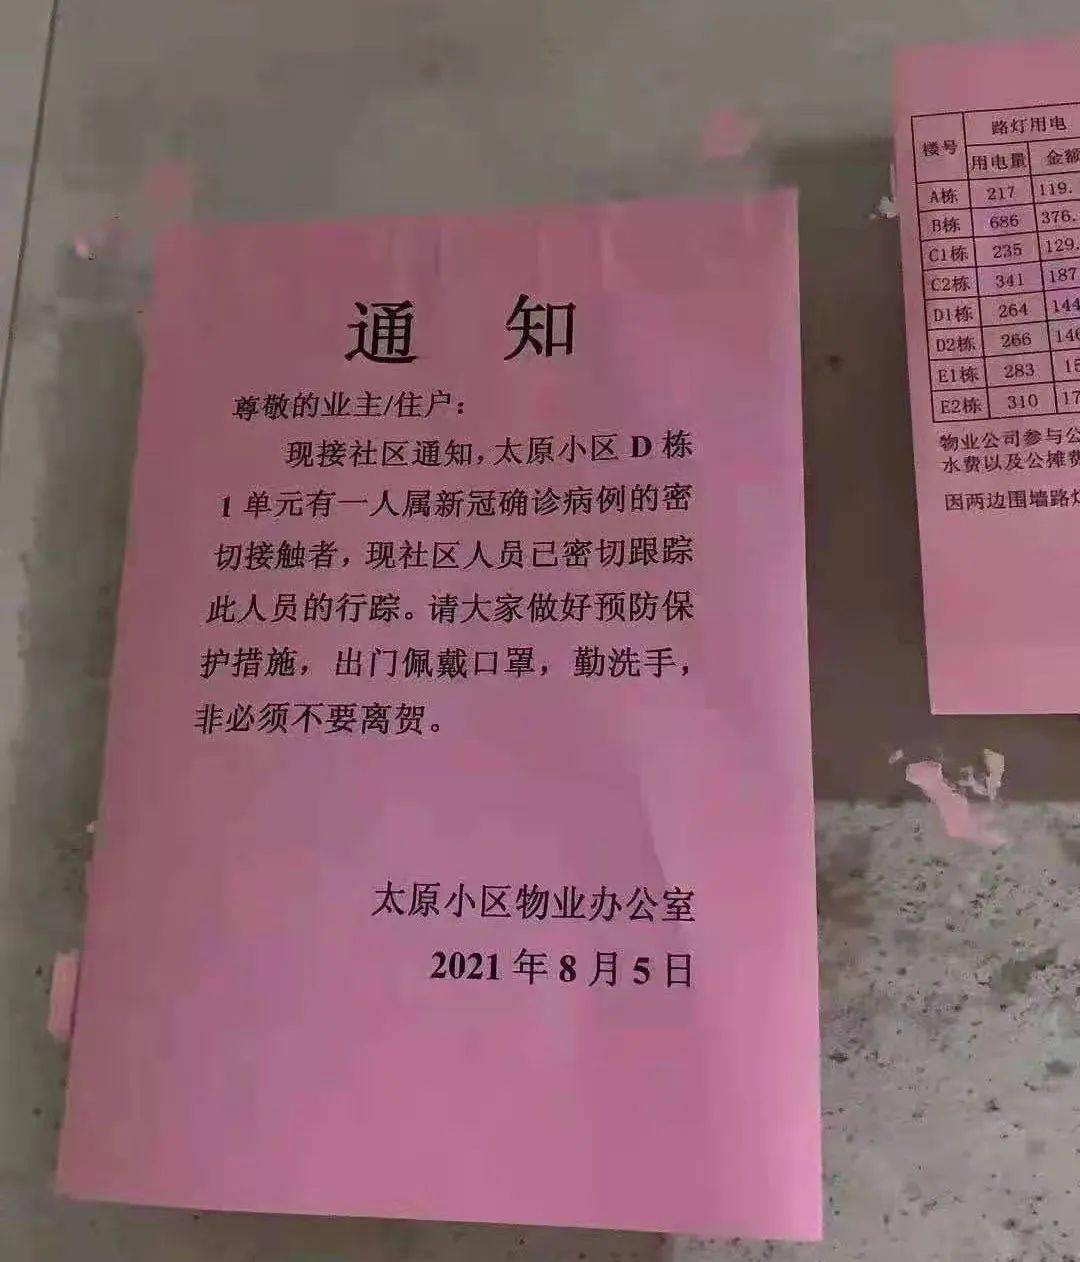 通 知
尊敬的业主/住户：
现接社区通知，太原小区 D 栋
1 单元有一人属新冠确诊病例的密
切接触者，现社区人员已密切跟踪
此人员的行踪。请大家做好预防保
护措施，出门佩戴口罩，勤洗手，
非必须不要离贺。
太原小区物业办公室
2021 年 8 月 5 日
楼号 路灯用电
用电量 金额
A栋 217 119.
B栋 686 376.
C1栋 235 129.
C2栋 341 187
D1栋 264 144
D2栋 266 146
E1栋 283 15
E2栋 310 17
物业公司参与公
水费以及公摊费
因两边围墙路灯